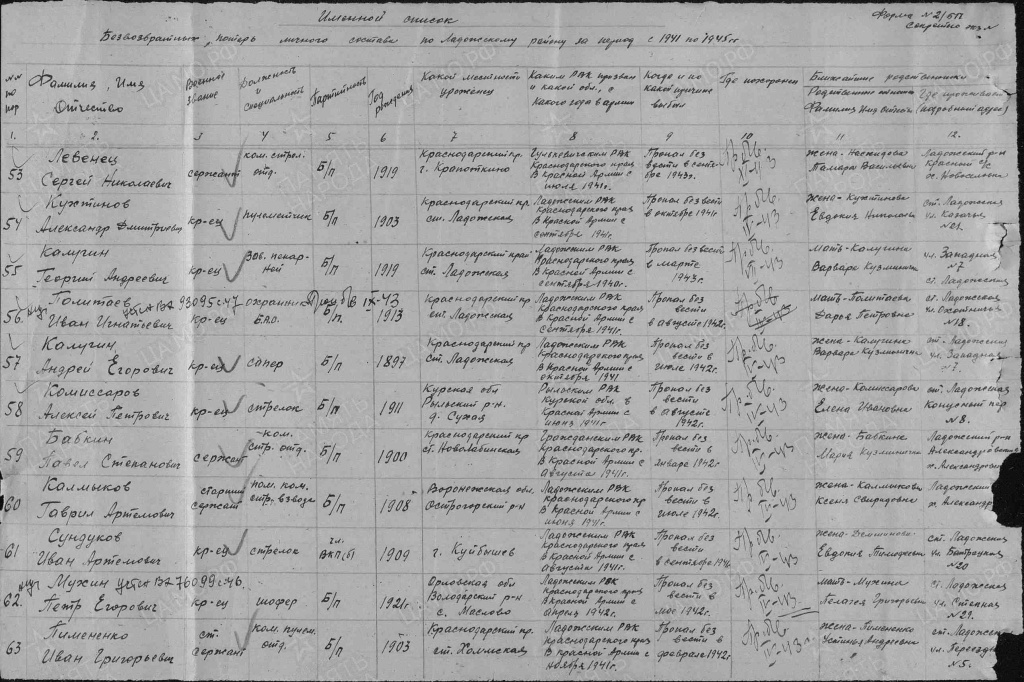 Именной список
Форма №2/БП
Секретно
Безвозвратных потерь личного состава по Ладожскому району за период с 1941 по 1945 гг
№№ по пор
Фамилия, Имя Отчество
Военное звание
Должность и специальность
Партийность
Год рождения
Какой местности уроженец
Каким РВК призван и какой обл., с какого года в армии
Когда и по какой причине выбыл
Где похоронен
Ближайшие родственники
Родственные отношения Фамилия Имя Отчество
Где проживает (подробный адрес)
1. 2. 3 4 5 6 7 8 9 10 11 12.
53 Левенец Сергей Николаевич
сержант
ком. стрел. отд.
Б/п
1919
Краснодарский кр. г. Кропоткино
Гулькевичским РВК Краснодарского края В Красной Армии с июля 1941г.
Пропал без вести в сентябре 1943г.
Пр. бв. IV-43
Тамара Васильевна
Ладожский р-н Красный с/с х. Новоселовка
54 Кужтинов Александр Дмитриевич
кр-ец
пулеметчик
Б/п
1903
Краснодарский кр ст. Ладожская
Ладожским РВК Краснодарского края В Красной Армии с сентября 1941г.
Пропал без вести в октябре 1941г
Пр. бв. IV-43
жена- Кужтинова Евдокия Николаевна
ст. Ладожская ул. Казачья №21.
55 Калугин Георгий Андреевич
кр-ец
Зав. пекарней
Б/п
1919
Краснодарский край ст. Ладожская
Ладожским РВК Краснодарского края В Красной Армии с сентября 1940г.
Пропал без вести в марте 1943г.
Пр. бв. IV-43
Мать- Калугина Варвара Кузминична
ул. Западная №7 ст. Ладожская
56. Полтаев Иван Игнатьевич
93095с-47
кр-ец
охранник Б.А.О.
Б/п.
IX-43
1913
Краснодарский кр ст. Ладожская
Ладожским РВК Краснодарского края В Красной Армии с сентября 1941г.
Пропал без вести в августе 1942г.
Пр. бв.
мать- Полтаева Дарья Петровна
ст. Ладожская ул. Охотничая №18.
57 Калугин Андрей Егорович
кр-ец
сапер
Б/п
1897
Краснодарский кр ст. Ладожская
Ладожским РВК Краснодарского края В Красной Армии с октября 1941
Пропал без вести в июле 1942г.
Пр. бв. IV-43
жена- Калугина Варвара Кузминична
ст. Ладожская ул. Западная №7.
58 Комиссаров Алексей Петрович
кр-ец
стрелок
Б/п
1911
Курская обл Рыльский р-н. д. Сухая
Рыльским РВК Курской обл. в Красной Армии с июня 1941г
Пропал без вести в августе 1942г.
Пр. бв. IV-43
жена- Комиссарова Елена Ивановна
ст. Ладожская Конюшный пер №8.
59 Бабкин Павел Степанович
сержант
ком. стр. отд.
Б/п
1900
Краснодарский кр ст. Новолабинская
Гражданским РВК Краснодарского кр. В Красной Армии с августа 1941г.
Пропал без вести в январе 1942г
Пр. бв. IV-43
жена- Бабкина Мария Кузминична
Ладожский р-н
60 Калмыков Гаврил Артемович
старший сержант
пом. ком. стр. взвода
Б/п
1908
Воронежская обл. Острогорский р-н
Ладожским РВК Краснодарского кр В Красной Армии с июня 1941г.
Пропал без вести в июле 1942г
Пр. бв. IV-43
жена- Калмыкова Ксеня Свиридовна
Ладожский
61 Сундуков Иван Артемович
кр-ец
стрелок
чл. ВКП(б)
1909
г. Куйбышев
Ладожским РВК Краснодарского края В Красной Армии с августа 1941г.
Пропал без вести в сентябре
Пр. бв. IV-43
Евдокия
ст. Ладожская ул. Батрацкая №20
62. Мужин Петр Егорович
76099с-46
кр-ец
шофер
Б/п
1921г
Орловская обл Володарский р-н с. Маслово
Ладожским РВК Краснодарского края В Красной Армии с апреля 1942г.
Пропал без вести в мае 1942г.
Пр. бв. IV-43
мать- Мужина Пелагея Григорьевна
ст. Ладожская ул. Степная №29.
63 Пимененко Иван Григорьевич
ст. сержант
ком. пулем. отд.
Б/п
1903
Краснодарский кр. ст. Холмская
Ладожским РВК Краснодарского края В Красной Армии с ноября 1941г.
Пропал без вести в феврале 1942г
Пр. бв. IV-43
жена- Пимененко Устинья Андреевна
ст. Ладожская №5.